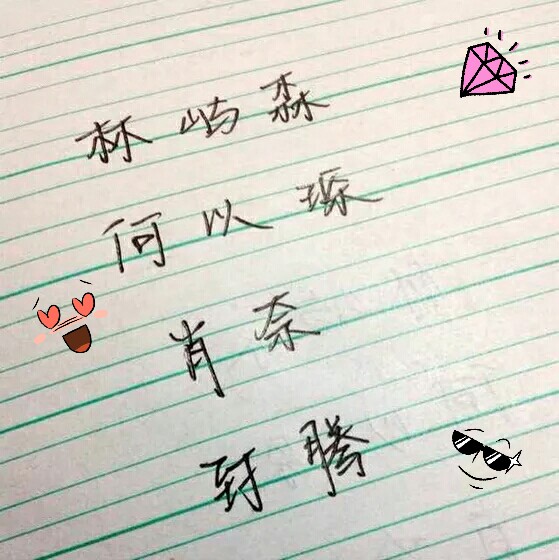 林屿森
何以琛
肖奈
封腾